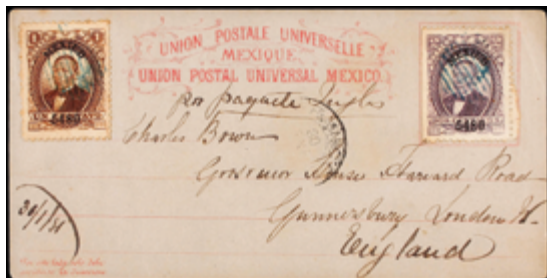 UNION POSTALE UNIVERSELLE
MEXIQUE
UNION POSTAL UNIVERSAL MEXICO.
por paquete Ingles
Charles Bown
Grosvenor House Harvard Road
Gunnersbury London W.
England
30/1/81
1
5480
5480